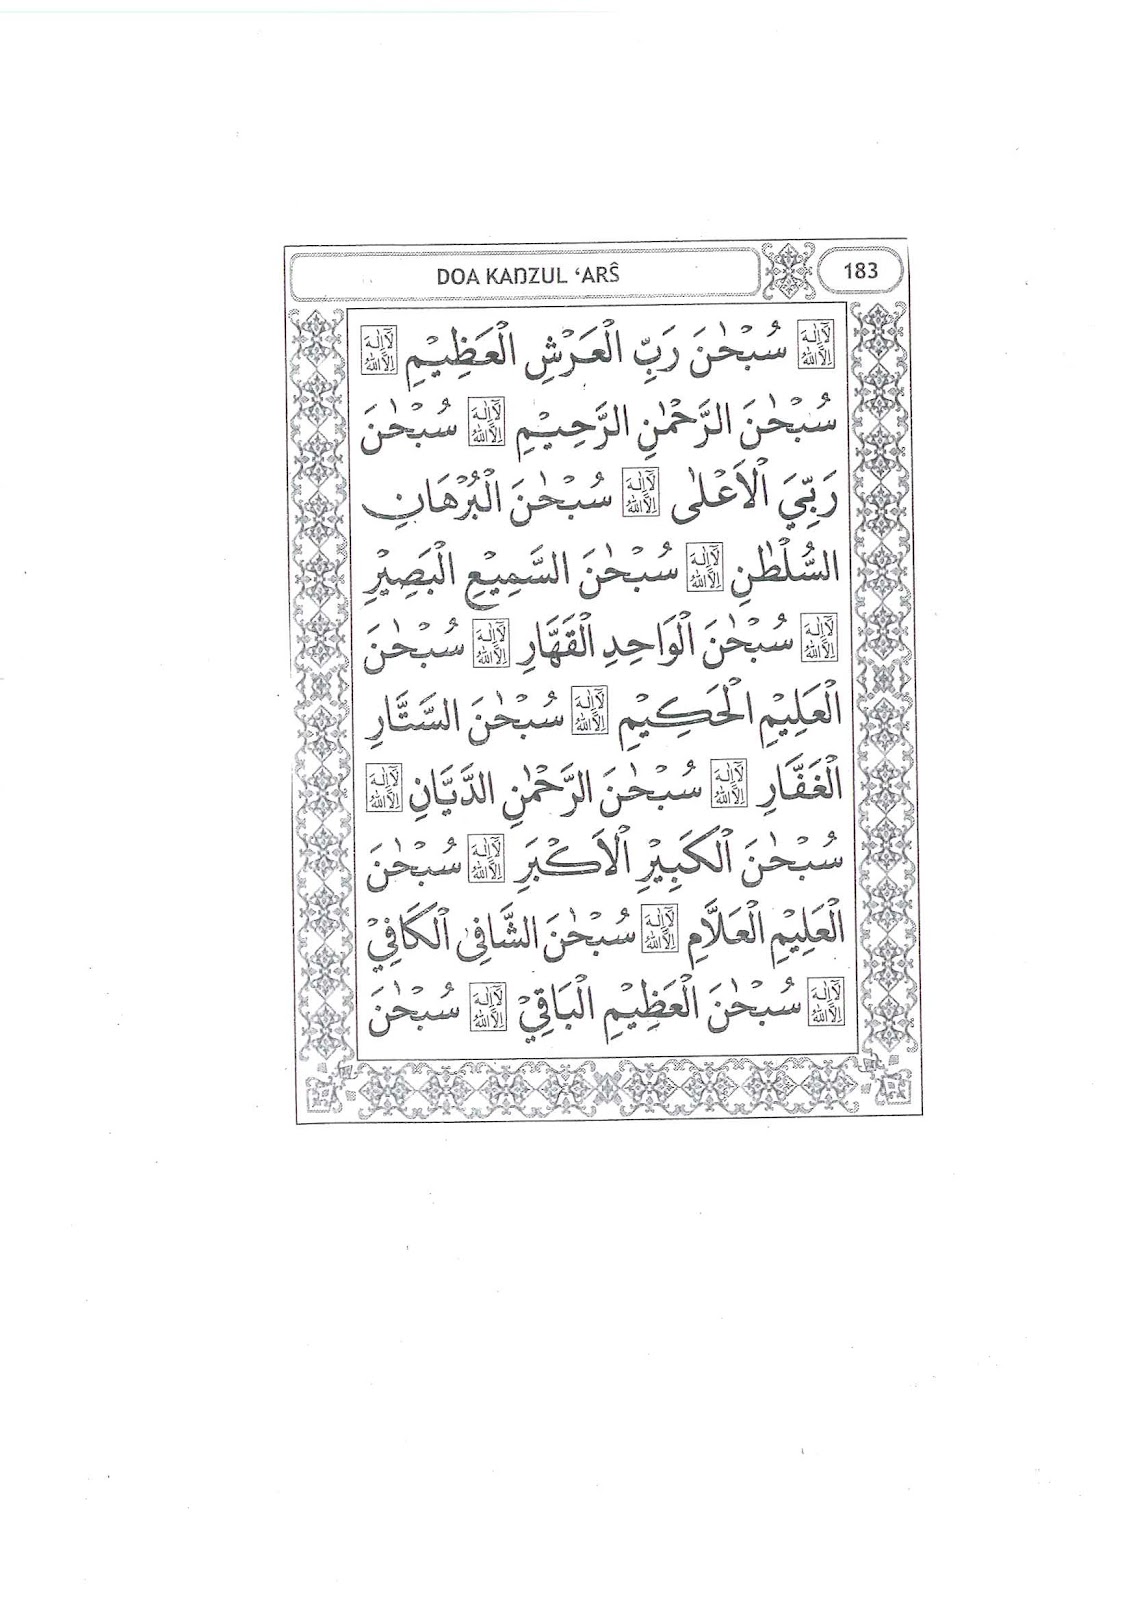 DOA KAŊZUL ‘ARŜ
183
لَآ اِلٰهَ اِلَّا اللهُ سُبْحٰنَ رَبِّ الْعَرْشِ الْعَظِيْمِ لَآ اِلٰهَ اِلَّا اللهُ
سُبْحٰنَ الرَّحْمٰنِ الرَّحِيْمِ لَآ اِلٰهَ اِلَّا اللهُ سُبْحٰنَ
رَبِّيَ الْاَعْلٰى لَآ اِلٰهَ اِلَّا اللهُ سُبْحٰنَ الْبُرْهَانِ
السُّلْطٰنِ لَآ اِلٰهَ اِلَّا اللهُ سُبْحٰنَ السَّمِيْعِ الْبَصِيْرِ
لَآ اِلٰهَ اِلَّا اللهُ سُبْحٰنَ الْوَاحِدِ الْقَهَّارِ لَآ اِلٰهَ اِلَّا اللهُ سُبْحٰنَ
الْعَلِيْمِ الْحَكِيْمِ لَآ اِلٰهَ اِلَّا اللهُ سُبْحٰنَ السَّتَّارِ
الْغَفَّارِ لَآ اِلٰهَ اِلَّا اللهُ سُبْحٰنَ الرَّحْمٰنِ الدَّيَّانِ لَآ اِلٰهَ اِلَّا اللهُ
سُبْحٰنَ الْكَبِيْرِ الْاَكْبَرِ لَآ اِلٰهَ اِلَّا اللهُ سُبْحٰنَ
الْعَلِيْمِ الْعَلَّامِ لَآ اِلٰهَ اِلَّا اللهُ سُبْحٰنَ الشَّافِى الْكَافِيْ
لَآ اِلٰهَ اِلَّا اللهُ سُبْحٰنَ الْعَظِيْمِ الْبَاقِيْ لَآ اِلٰهَ اِلَّا اللهُ سُبْحٰنَ